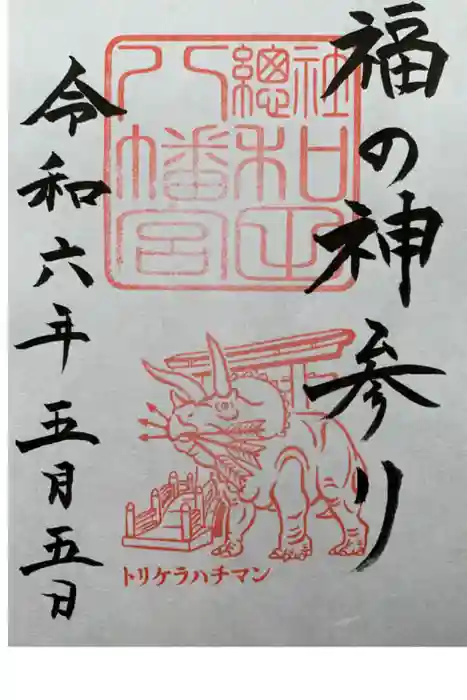 福の神參り
總社
和田
八幡宮
トリケラハチマン
令和六年五月五日